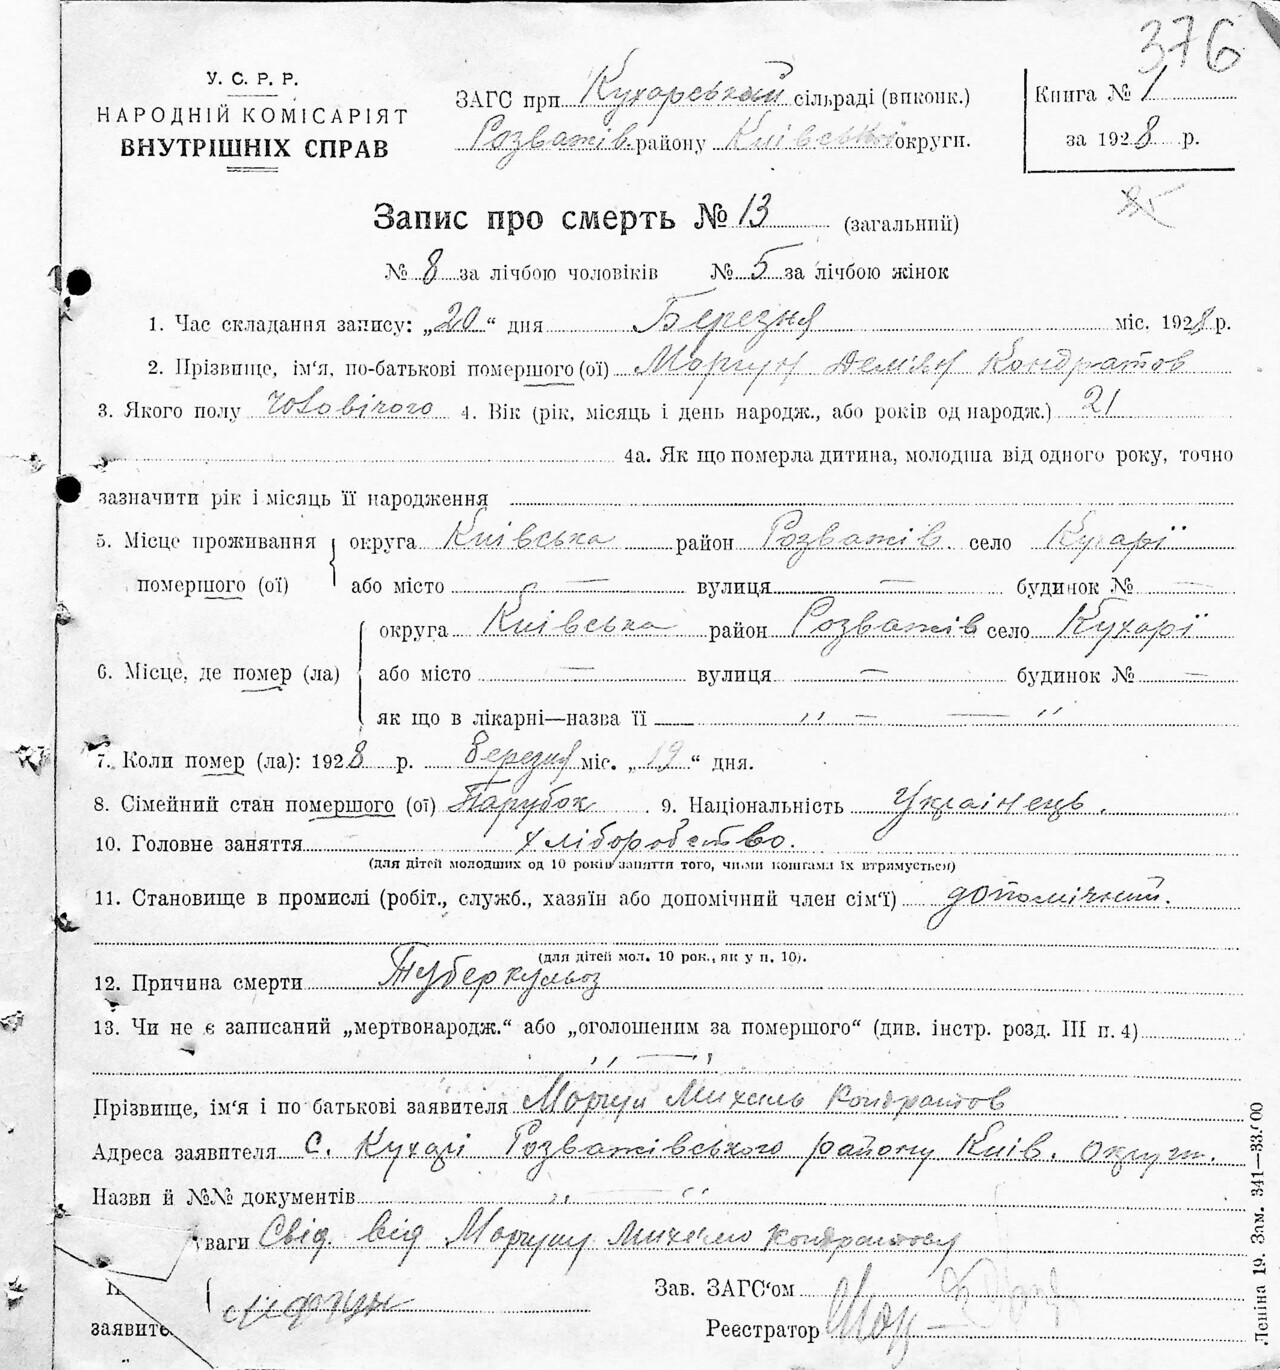 376
У. С. Р. Р.
НАРОДНІЙ КОМІСАРІЯТ
ВНУТРІШНІХ СПРАВ
ЗАГС при Кухарський сільраді (виконк.)
Розважів. району Київської округи.
Книга № 1
за 1928 р.
Запис про смерть № 13 (загальний)
№ 8 за лічбою чоловіків № 5 за лічбою жінок
1. Час складання запису: „20“ дня Березня міс. 1928 р.
2. Прізвище, ім‘я, по-батькові помершого (ої) Моргун Демян Кондратов
3. Якого полу чоловічого 4. Вік (рік, місяць і день народж., або років од народж.) 21
4а. Як що померла дитина, молодша від одного року, точно
зазначити рік і місяць її народження
5. Місце проживання помершого (ої) округа Київська район Розважів. село Кухарі
або місто — вулиця — будинок № —
6. Місце, де помер (ла) округа Київська район Розважів село Кухарі
або місто — вулиця — будинок № —
як що в лікарні—назва її — „ — — “
7. Коли помер (ла): 1928 р. березня міс. „19“ дня.
8. Сімейний стан помершого (ої) Парубок 9. Національність Українець.
10. Головне заняття хліборобство.
(для дітей молодших од 10 років заняття того, чиїми коштами їх втрямується)
11. Становище в промислі (робіт., служб., хазяїн або допомічний член сім‘ї) допомічний.
(для дітей мол. 10 рок., як у п. 10).
12. Причина смерти Туберкульоз
13. Чи не є записаний „мертвонародж.“ або „оголошеним за помершого“ (див. інстр. розд. III п. 4)
„ — “
Прізвище, ім‘я і по батькові заявителя Моргун Михаль Кондратов
Адреса заявителя с. Кухарі Розважівського району Київ. округи.
Назви й №№ документів „ — “
уваги Свід. від Моргун Михайло Кондратову
заявите Моргун
Зав. ЗАГС‘ом
Реєстратор
Леніна 19. Зам. 341—33.000